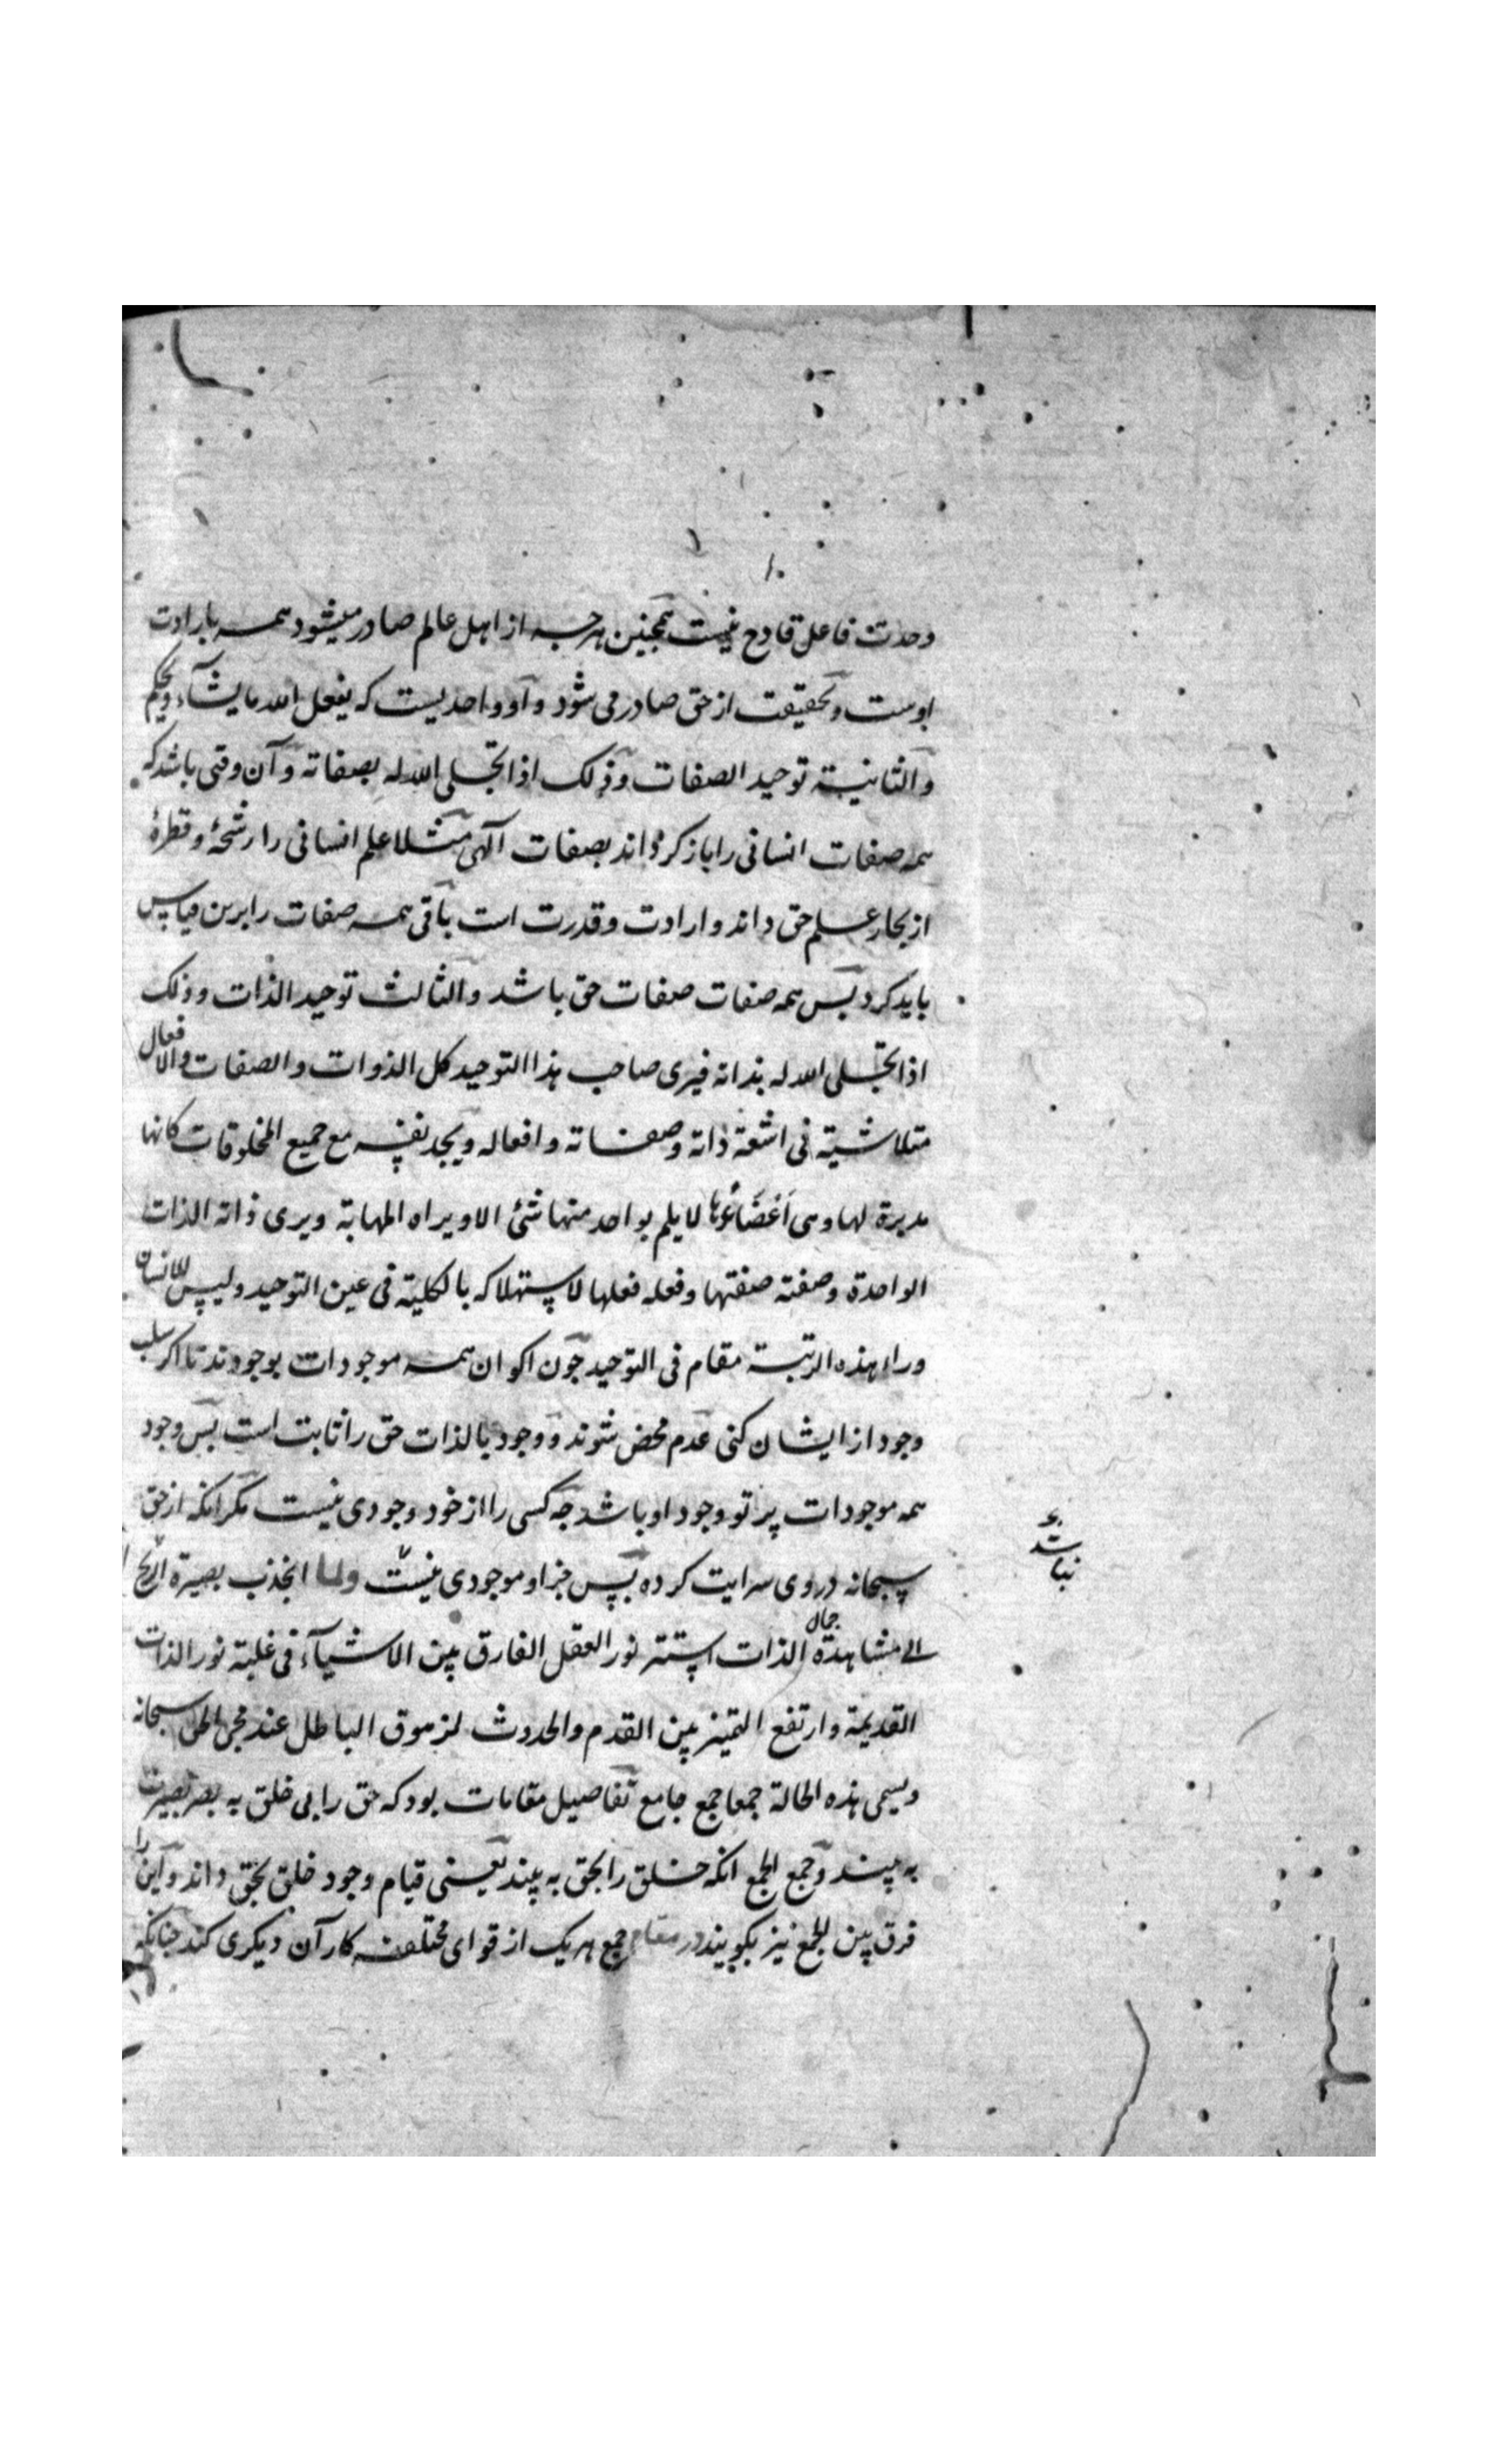 وحدت فاعل قادح نیست همچنین هرچه از اهل عالم صادر میشود همه بارادت
اوست و بحقیقت از حق صادر می شود و او واحدیست که یفعل الله ما یشآء و یحکم
والثانیة توحید الصفات وذلک اذا تجلی الله له بصفاته و آن وقتی باشد که
همه صفات انسانی را باز کرداند بصفات آلهی مثلا علم انسانی را رشحهٔ و قطرهٔ
از بحار علم حق داند و ارادت و قدرت است باقی همه صفات را برین قیاس
باید کرد پس همه صفات صفات حق باشد والثالث توحید الذات وذلک
اذا تجلی الله له بذاته فیری صاحب هذا التوحید کل الذوات والصفات والافعال
متلاشیة فی اشعة ذاته وصفاته وافعاله ویجد نفسه مع جمیع المخلوقات کانها
مدبرة لها وهی اَعْضَاءُها لا یلم بواحد منها شئ الا ویراه الما به ویری ذاته الذات
الواحدة وصفته صفتها وفعله فعلها لاستهلاکه بالکلیة فی عین التوحید ولیس للانسان
وراء هذه الرتبة مقام فی التوحید چون اکوان همه موجودات بوجودند تا اکر سلب
وجود از ایشان کنی عدم محض شوند و وجود بالذات حق را ثابت است پس وجود
همه موجودات پرتو وجود او باشد چه کسی را از خود وجودی نیست مکر انکه از حق
سبحانه در وی سرایت کرده پس جز او موجودی نیست ولما انجذب بصیرة الروح
الی مشاهدة جمال الذات استتر نور العقل الفارق بین الاشیآء فی غلبة نور الذات
القدیمة وارتفع التمیز بین القدم والحدوث لزهوق الباطل عند مجئ الحق سبحانه
ویسمی هذه الحالة جمعا جمع جامع تفاصیل مقامات بود که حق را بی خلق به بصر بصیرت
به بیند و جمع الجمع انکه خلق را بحق به بیند یعنی قیام وجود خلق بحق داند و این را
فرق بین الجمع نیز بکویند در مقام جمع هر یک از قوای مختلفه کار آن دیکری کند چنانکه
نباشد